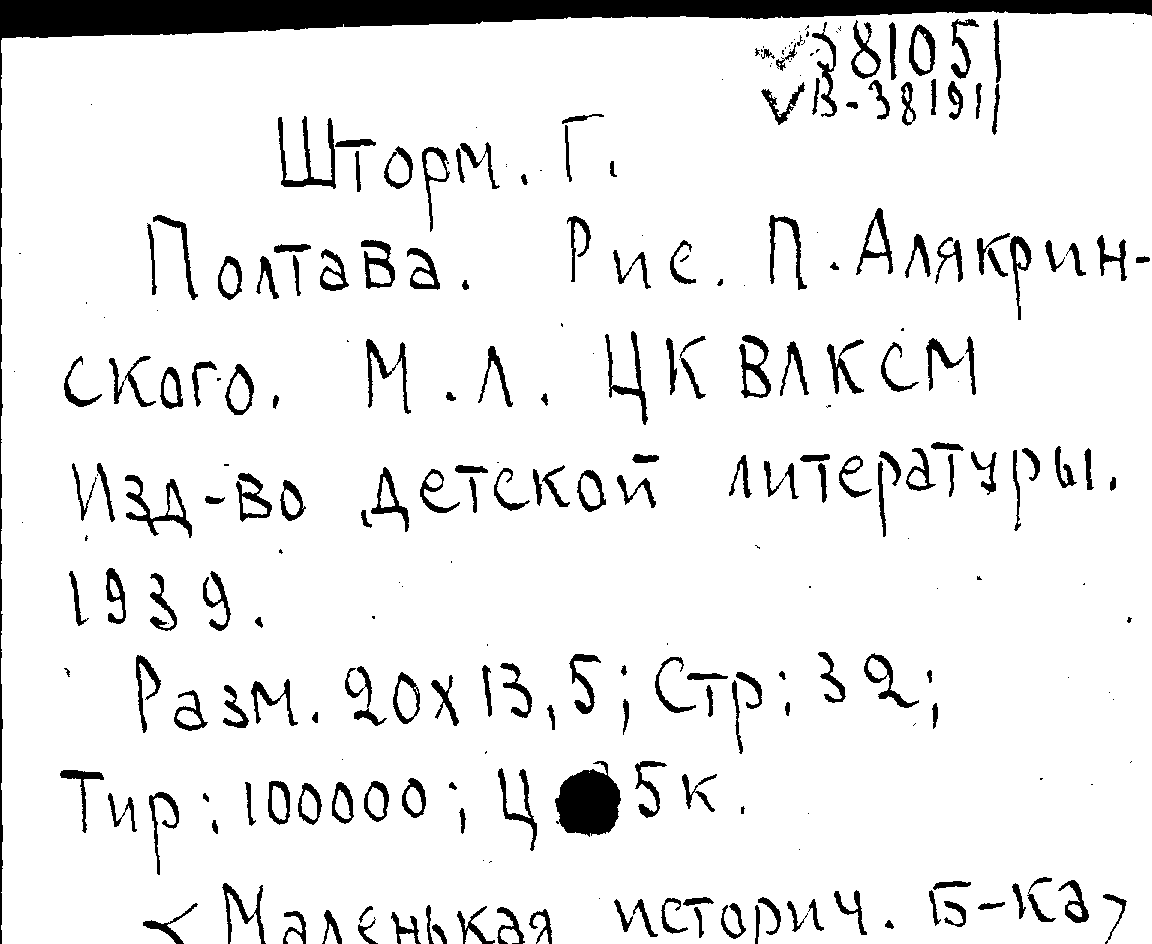 38105
В-38191
Шторм. Г.
Полтава. Рис. П. Алякрин-
ского. М. Л. ЦК ВЛКСМ
Изд-во детской литературы.
1939.
Разм. 20х13,5; Стр: 32;
Тир: 100000; Ц 5к.
<Маленькая историч. Б-ка>